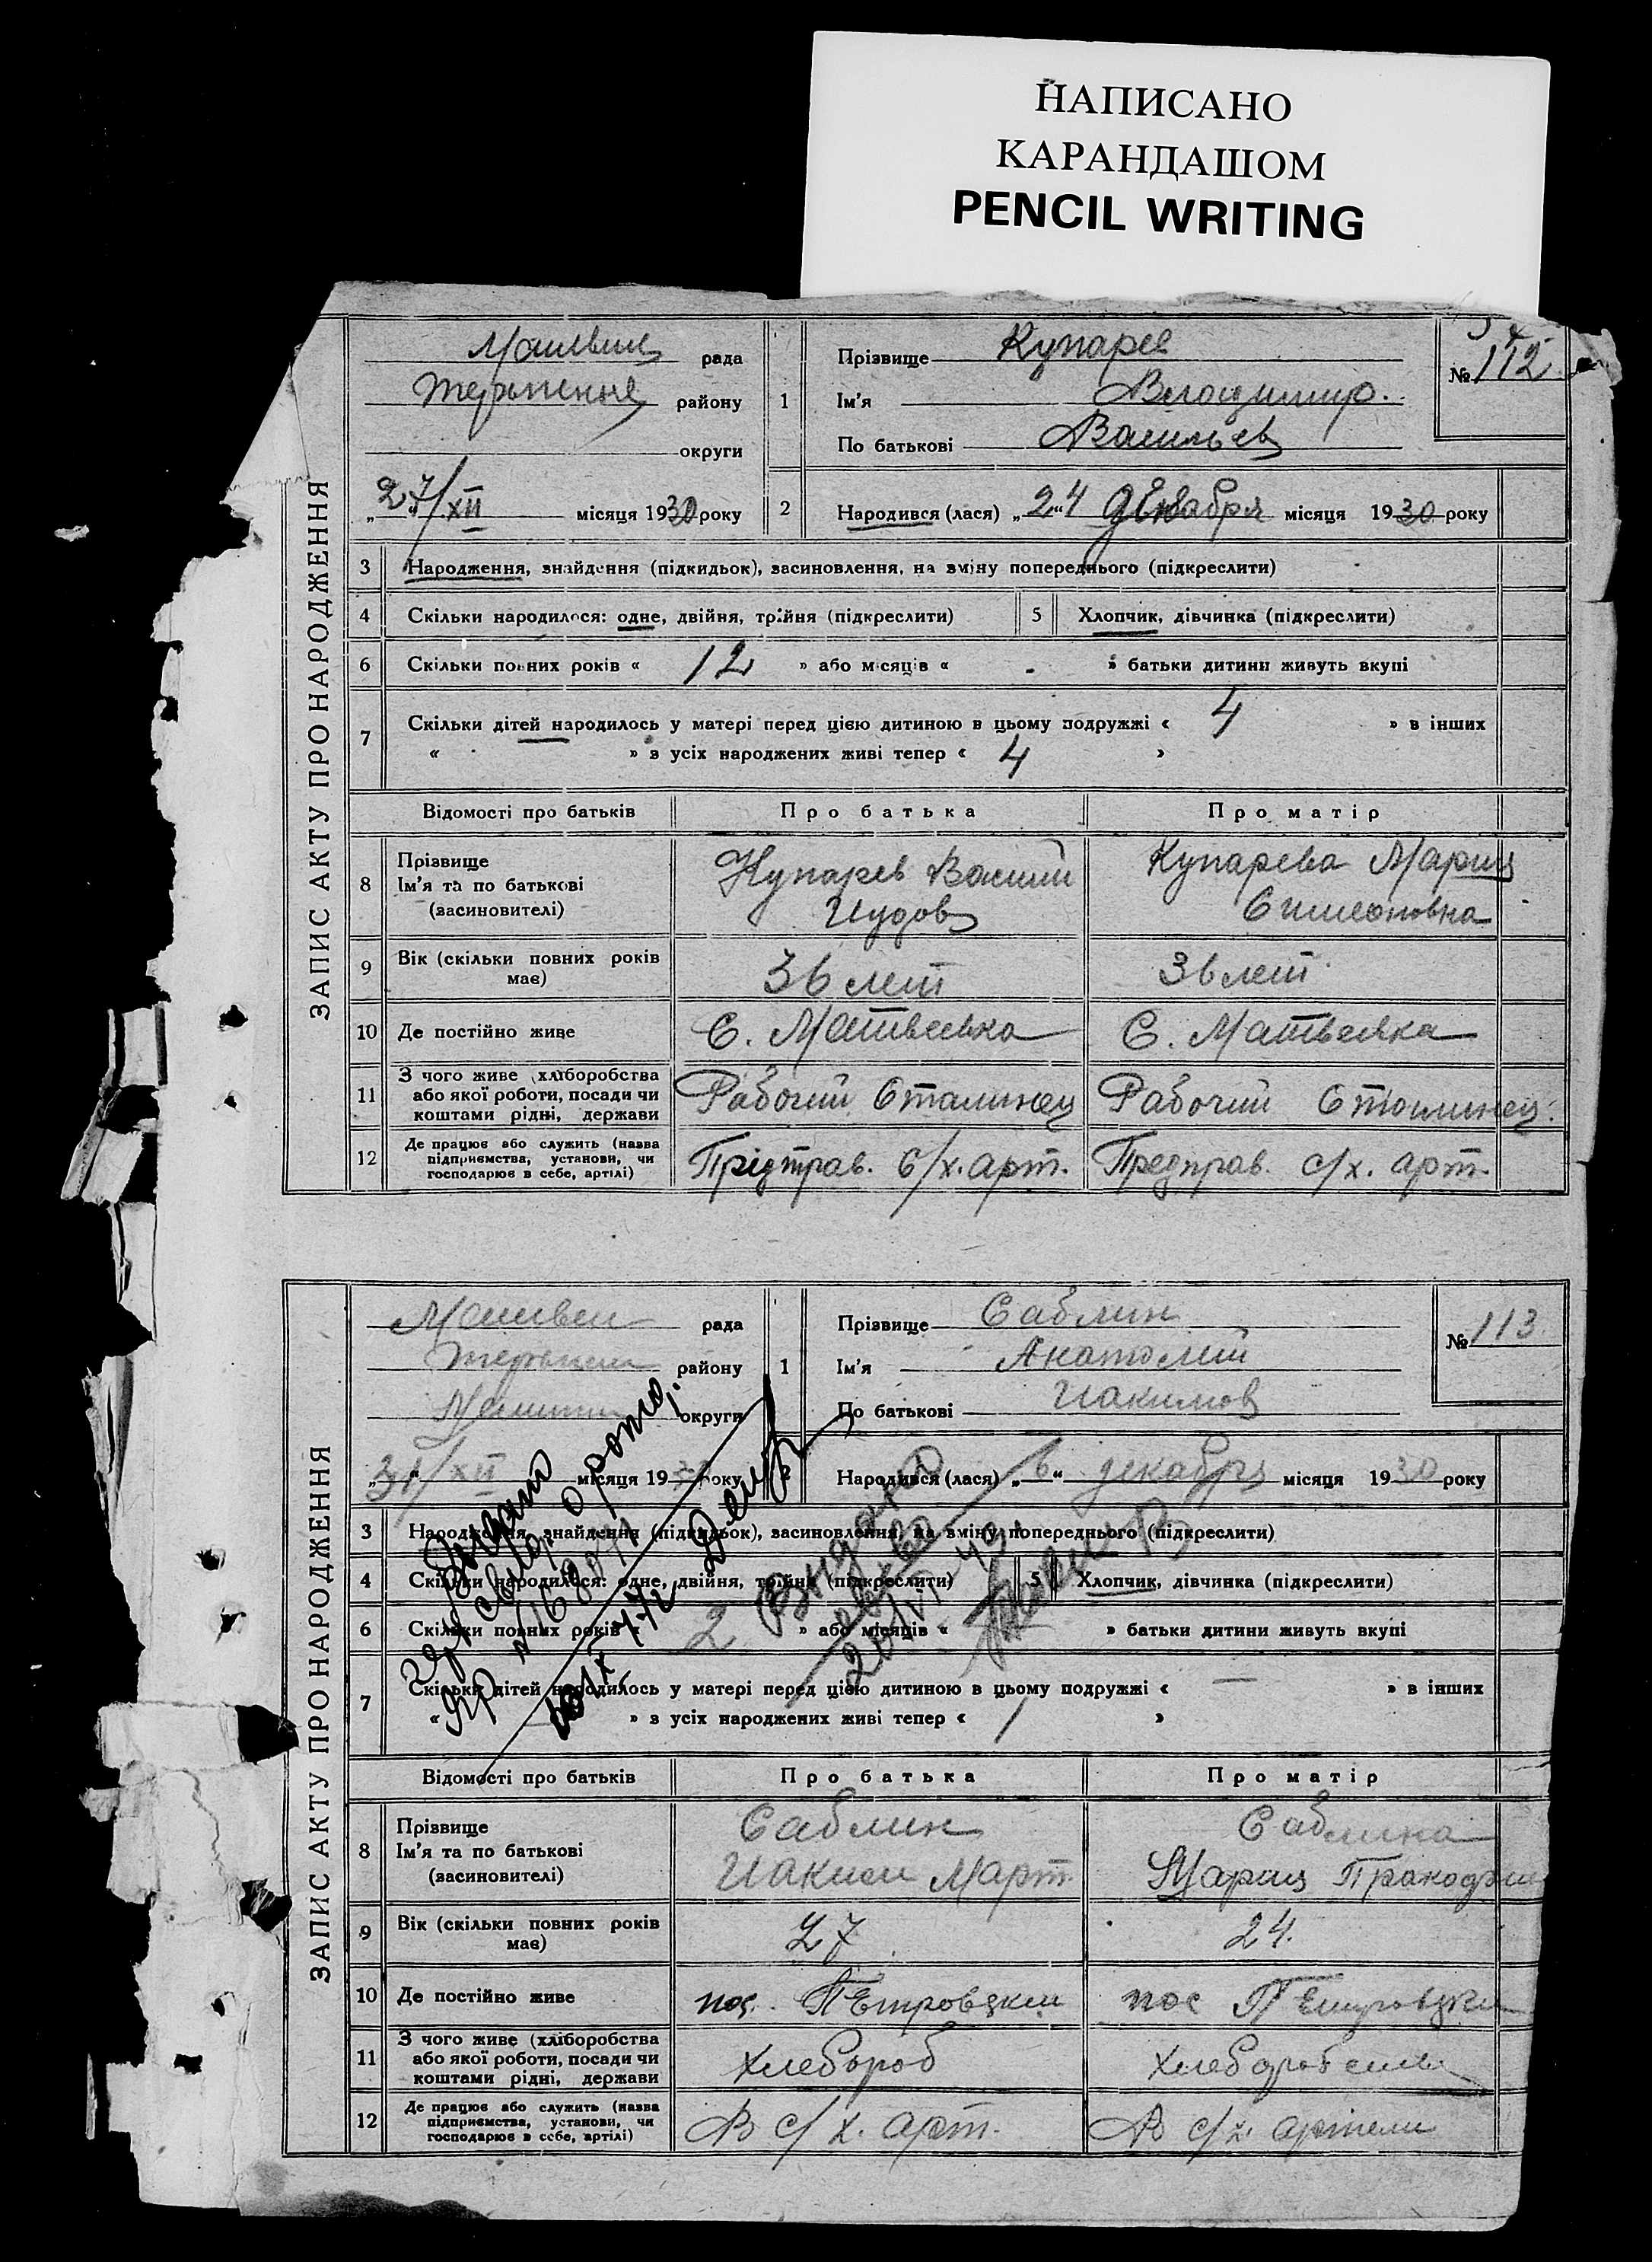 НАПИСАНО
КАРАНДАШОМ
PENCIL WRITING
ЗАПИС АКТУ ПРО НАРОДЖЕННЯ
рада
району
округи
„27/XII місяця 1930 року
1
Прізвище Купарев
Ім'я Владимир.
По батькові Васильев
№ 112
2
Народився (лася) „24“ Декабря місяця 1930 року
3 Народження, знайдення (підкидьок), засиновлення, на зміну попереднього (підкреслити)
4 Скільки народилося: одне, двійня, трійня (підкреслити) 5 Хлопчик, дівчинка (підкреслити)
6 Скільки повних років « 12 » або місяців « » батьки дитини живуть вкупі
7 Скільки дітей народилось у матері перед цією дитиною в цьому подружжі « 4 » в інших
« » з усіх народжених живі тепер « 4 »
Відомості про батьків Про батька Про матір
8 Прізвище
Ім'я та по батькові
(засиновителі)
Купарев Васили
Иудов
Купарева Мария
Симоновна
9 Вік (скільки повних років
має)
36 лет
36 лет
10 Де постійно живе С. Матвеевка С. Матвеевка
11 З чого живе (хліборобства
або якої роботи, посади чи
коштами рідні, держави
Рабочий Сталинец Рабочий Сталинец
12 Де працює або служить (назва
підприємства, установи, чи
господарює в себе, артілі)
с/х. арт. с/х. арт.
ЗАПИС АКТУ ПРО НАРОДЖЕННЯ
рада
району
округи
„31/XII місяця 19 року
1
Прізвище Саблин
Ім'я Анатолий
По батькові Иакимов
№ 113
Народився (лася) „6“ декабря місяця 1930 року
3 Народження, знайдення (підкидьок), засиновлення, на зміну попереднього (підкреслити)
4 Скільки народилося: одне, двійня, трійня (підкреслити) 5 Хлопчик, дівчинка (підкреслити)
6 Скільки повних років « 2 » або місяців « — » батьки дитини живуть вкупі
7 Скільки дітей народилось у матері перед цією дитиною в цьому подружжі « — » в інших
« — » з усіх народжених живі тепер « 1 »
Выдано
Видано
Відомості про батьків Про батька Про матір
8 Прізвище
Ім'я та по батькові
(засиновителі)
Саблин
Иаким Март.
Саблина
Мария
9 Вік (скільки повних років
має)
27
24.
10 Де постійно живе пос. Петровски пос Петровски
11 З чого живе (хліборобства
або якої роботи, посади чи
коштами рідні, держави
Хлебороб
12 Де працює або служить (назва
підприємства, установи, чи
господарює в себе, артілі)
В с/х. арт. В с/х. артели